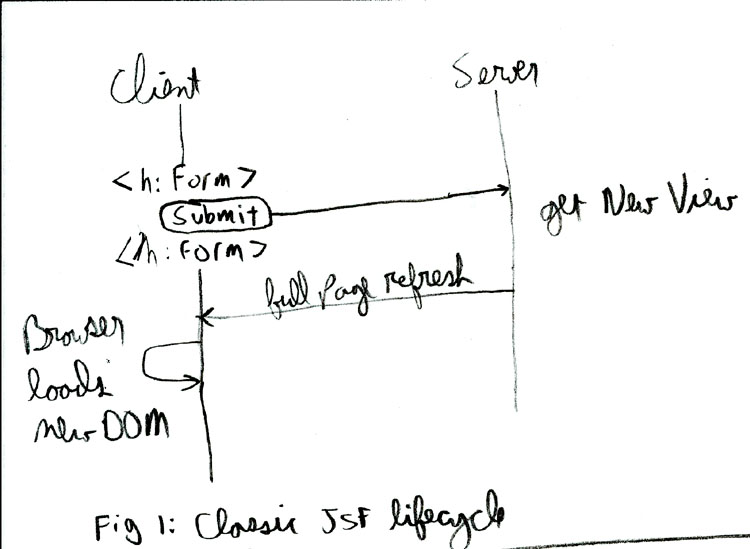 Client
Server
<h: Form>
Submit
get New View
</h: Form>
full Page refresh
Browser
loads
new DOM
Fig 1: Classic JSF lifecycle